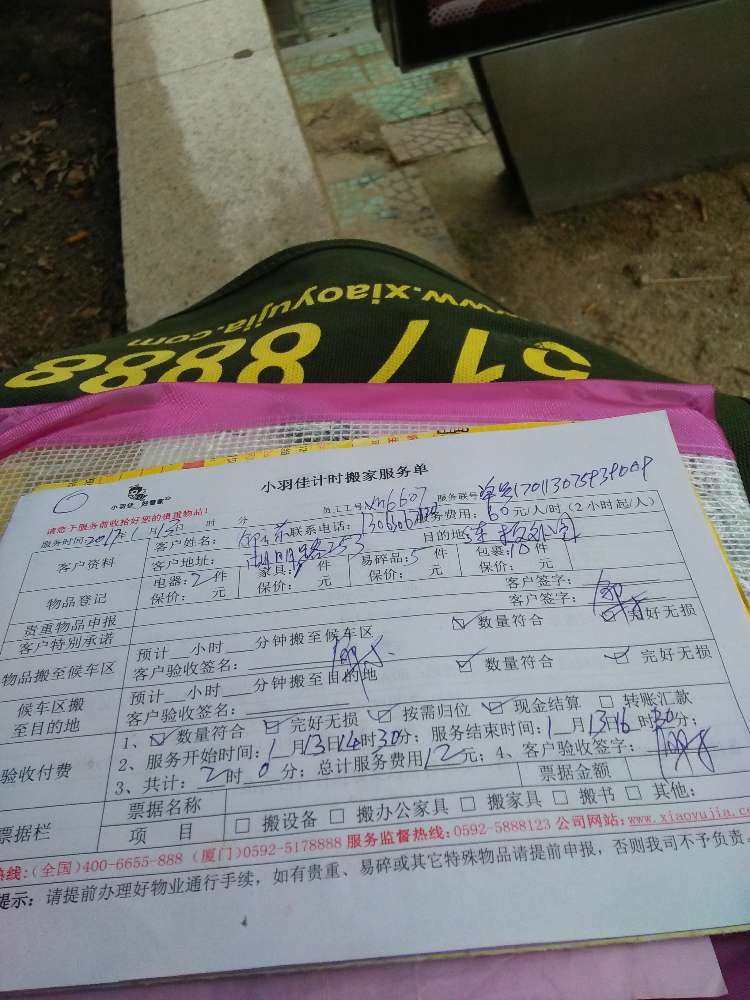 www.xiaoyujia.com
5178888
小羽佳计时搬家服务单
小羽佳 好管家
请您于服务前收拾好您的贵重物品!
员工工号xn6607
服务联号
服务时间:2017年1月13日 时 分
服务费用:60元/人/时(2小时起/人)
客户资料
客户姓名:
联系电话:
客户地址:
目的地:
物品登记
电器:2件
家具: 件
易碎品:5件
包裹:10件
保价: 元
保价: 元
保价: 元
保价: 元
贵重物品申报
客户签字:
客户特别承诺
客户签字:
物品搬至候车区
预计__小时__分钟搬至候车区
☑ 数量符合 ☑ 完好无损
客户验收签名:
候车区搬至目的地
预计__小时__分钟搬至目的地
☑ 数量符合 ☑ 完好无损
客户验收签名:
验收付费
1、☑ 数量符合 ☑ 完好无损 ☑ 按需归位 ☑ 现金结算 □ 转账汇款
2、服务开始时间:1月13日14时30分;服务结束时间:1月13日16时30分;
3、共计:2时0分;总计服务费用12元;4、客户验收签字:
票据栏
票据名称
票据金额
项 目
□ 搬设备 □ 搬办公家具 □ 搬家具 □ 搬书 □ 其他:
热线:(全国)400-6655-888 (厦门)0592-5178888 服务监督热线:0592-5888123 公司网站:www.xiaoyujia.com
提示:请提前办理好物业通行手续,如有贵重、易碎或其它特殊物品请提前申报,否则我司不予负责。